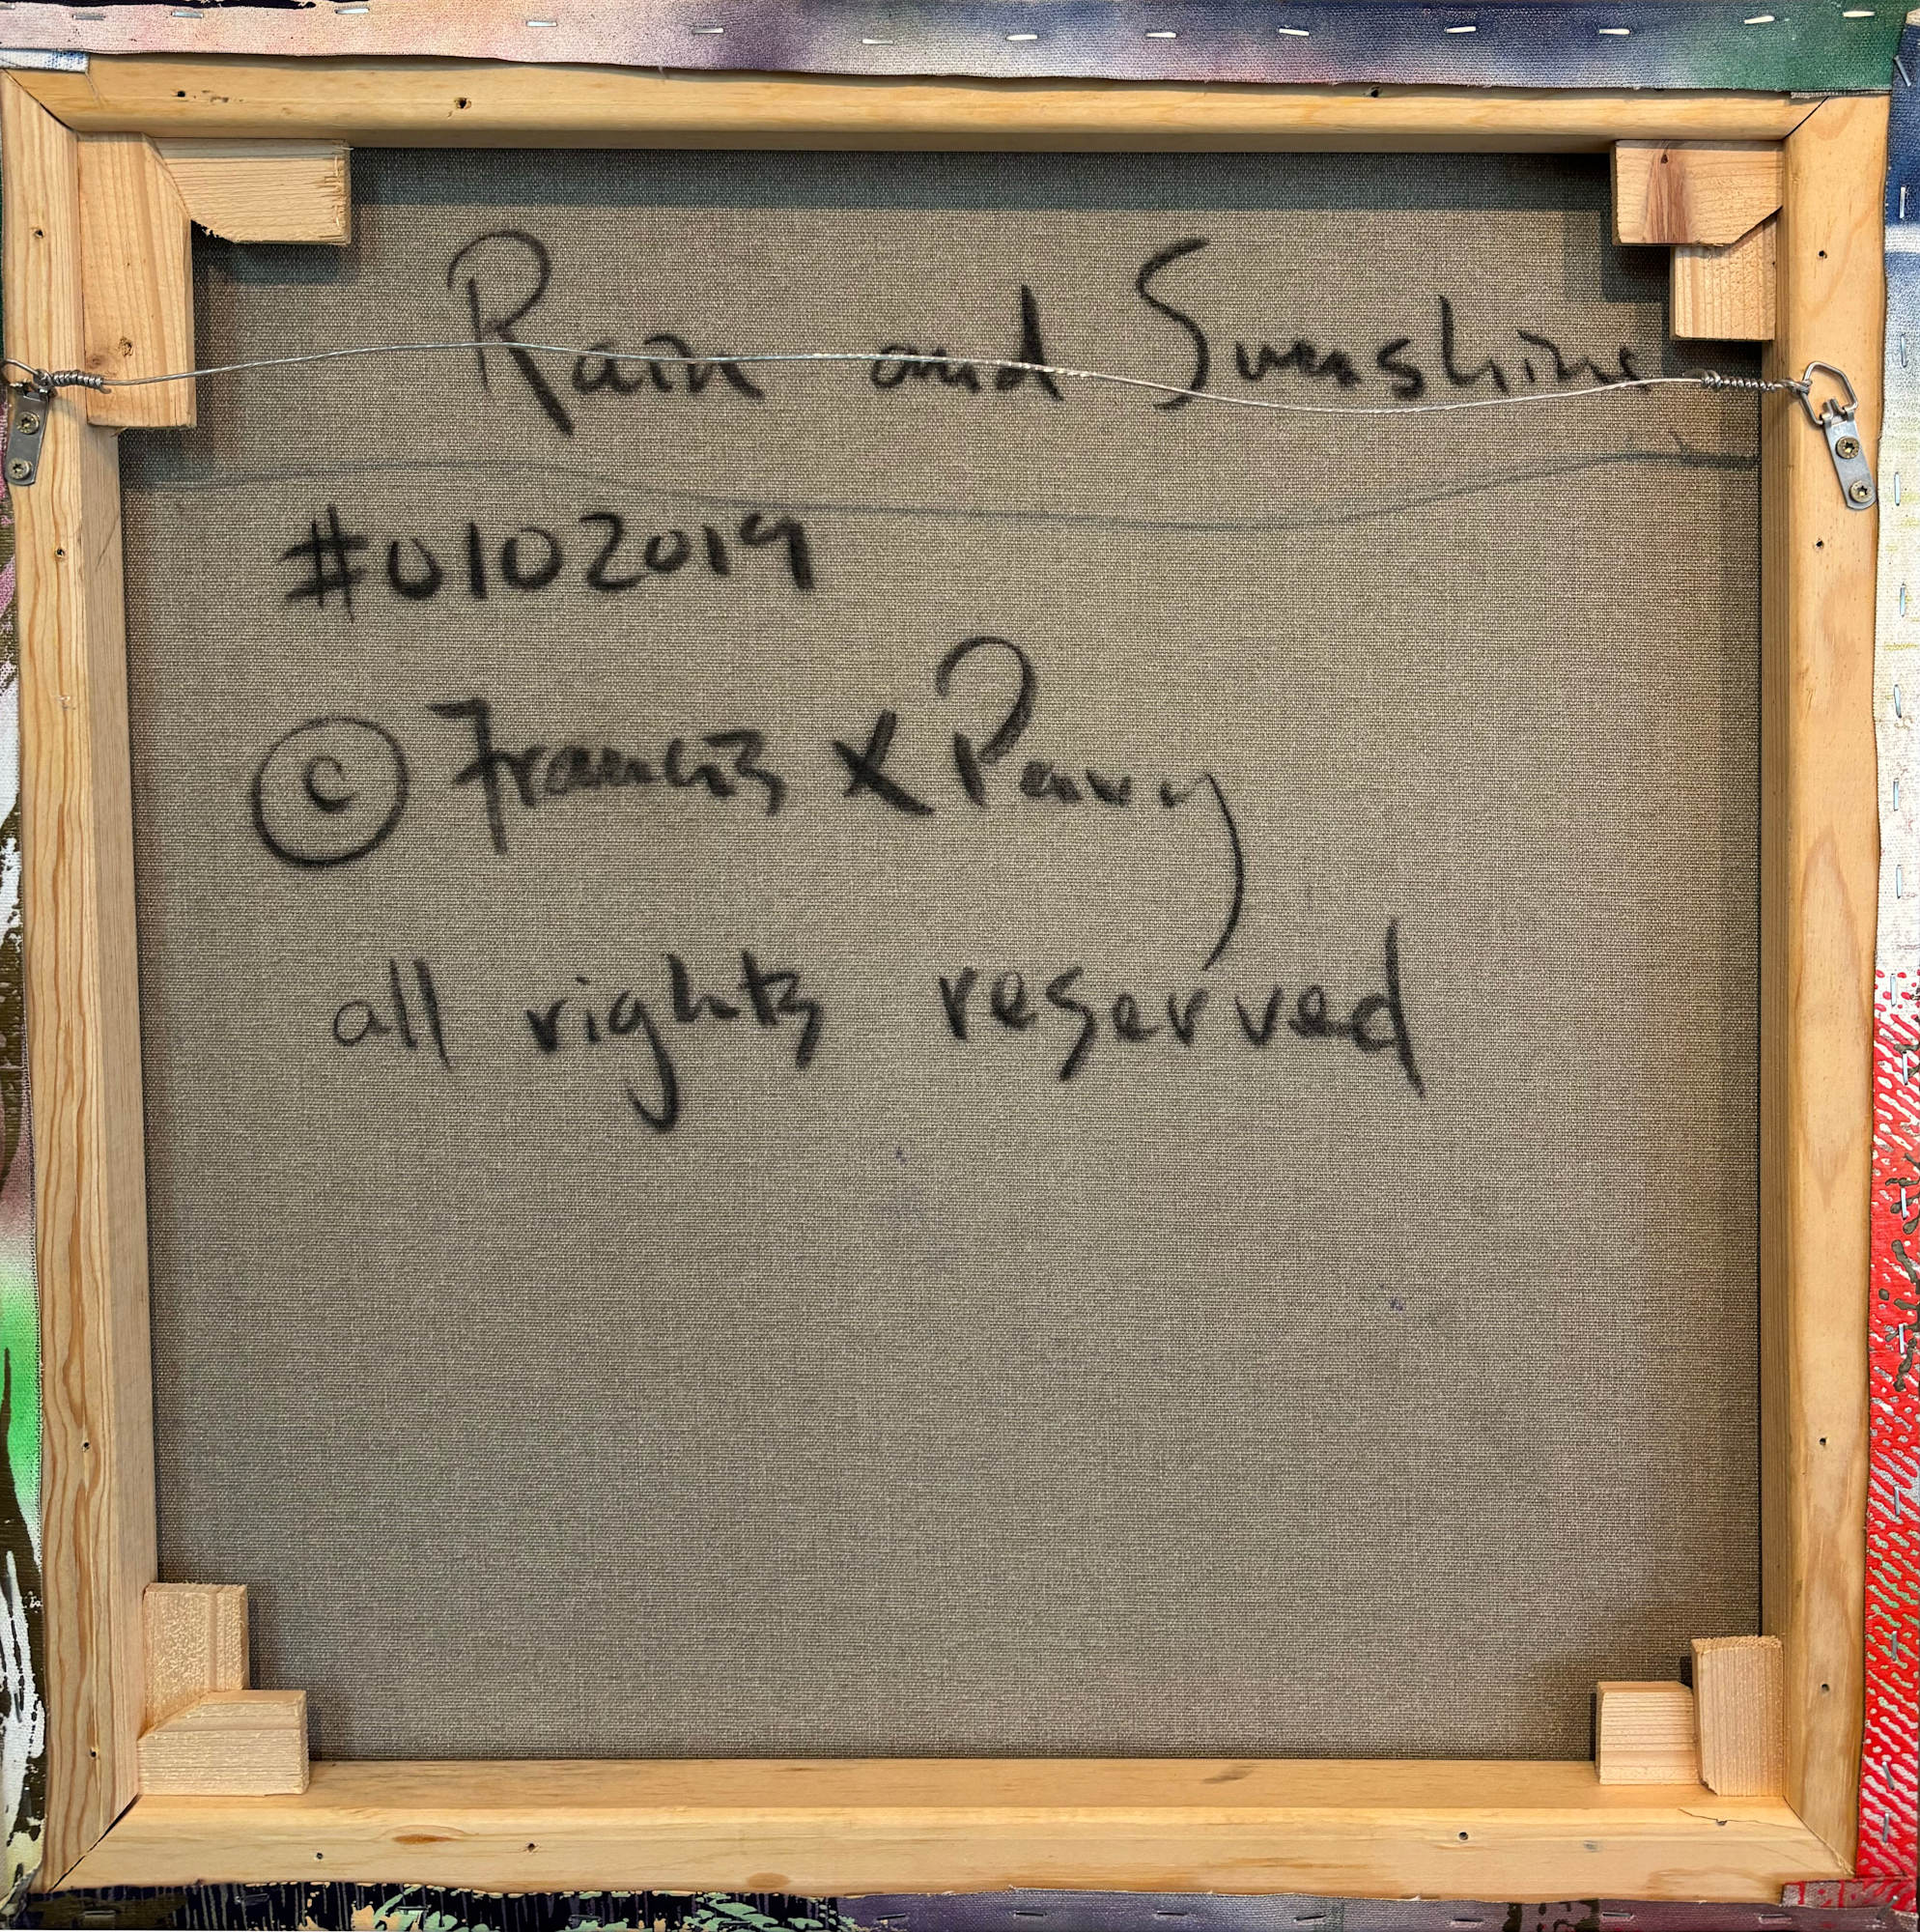 Rain and Sunshine
#0102019
© Francis X Pavy
all rights reserved